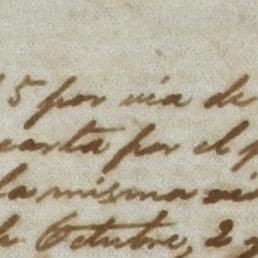 5 por via de
carta por el
la misma
de Octubre, 2